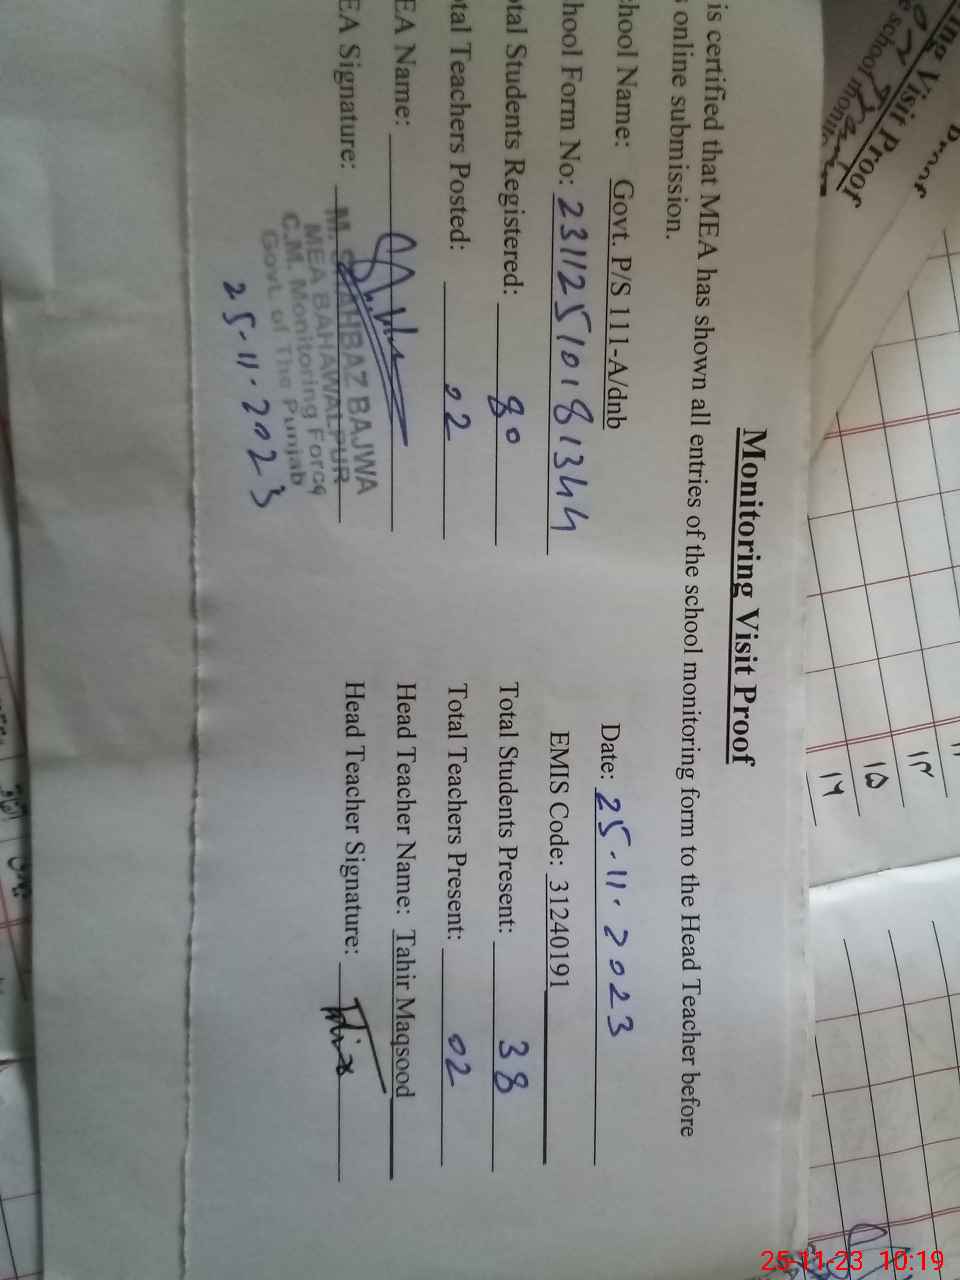 Monitoring Visit Proof
is certified that MEA has shown all entries of the school monitoring form to the Head Teacher before
online submission.
Date: 25.11.2023
chool Name: Govt. P/S 111-A/dnb
EMIS Code: 31240191
hool Form No: 23112510181344
Total Students Present: 38
tal Students Registered: 80
Total Teachers Present: 02
tal Teachers Posted: 02
Head Teacher Name: Tahir Maqsood
EA Name:
Head Teacher Signature: Tahir
EA Signature:
M. SHAHBAZ BAJWA
MEA BAHAWALPUR
C.M. Monitoring Force
Govt. of The Punjab
25.11.2023
ing Visit Proof
school monitor
۱۴
۱۵
۱۶
25-11-23 10:19